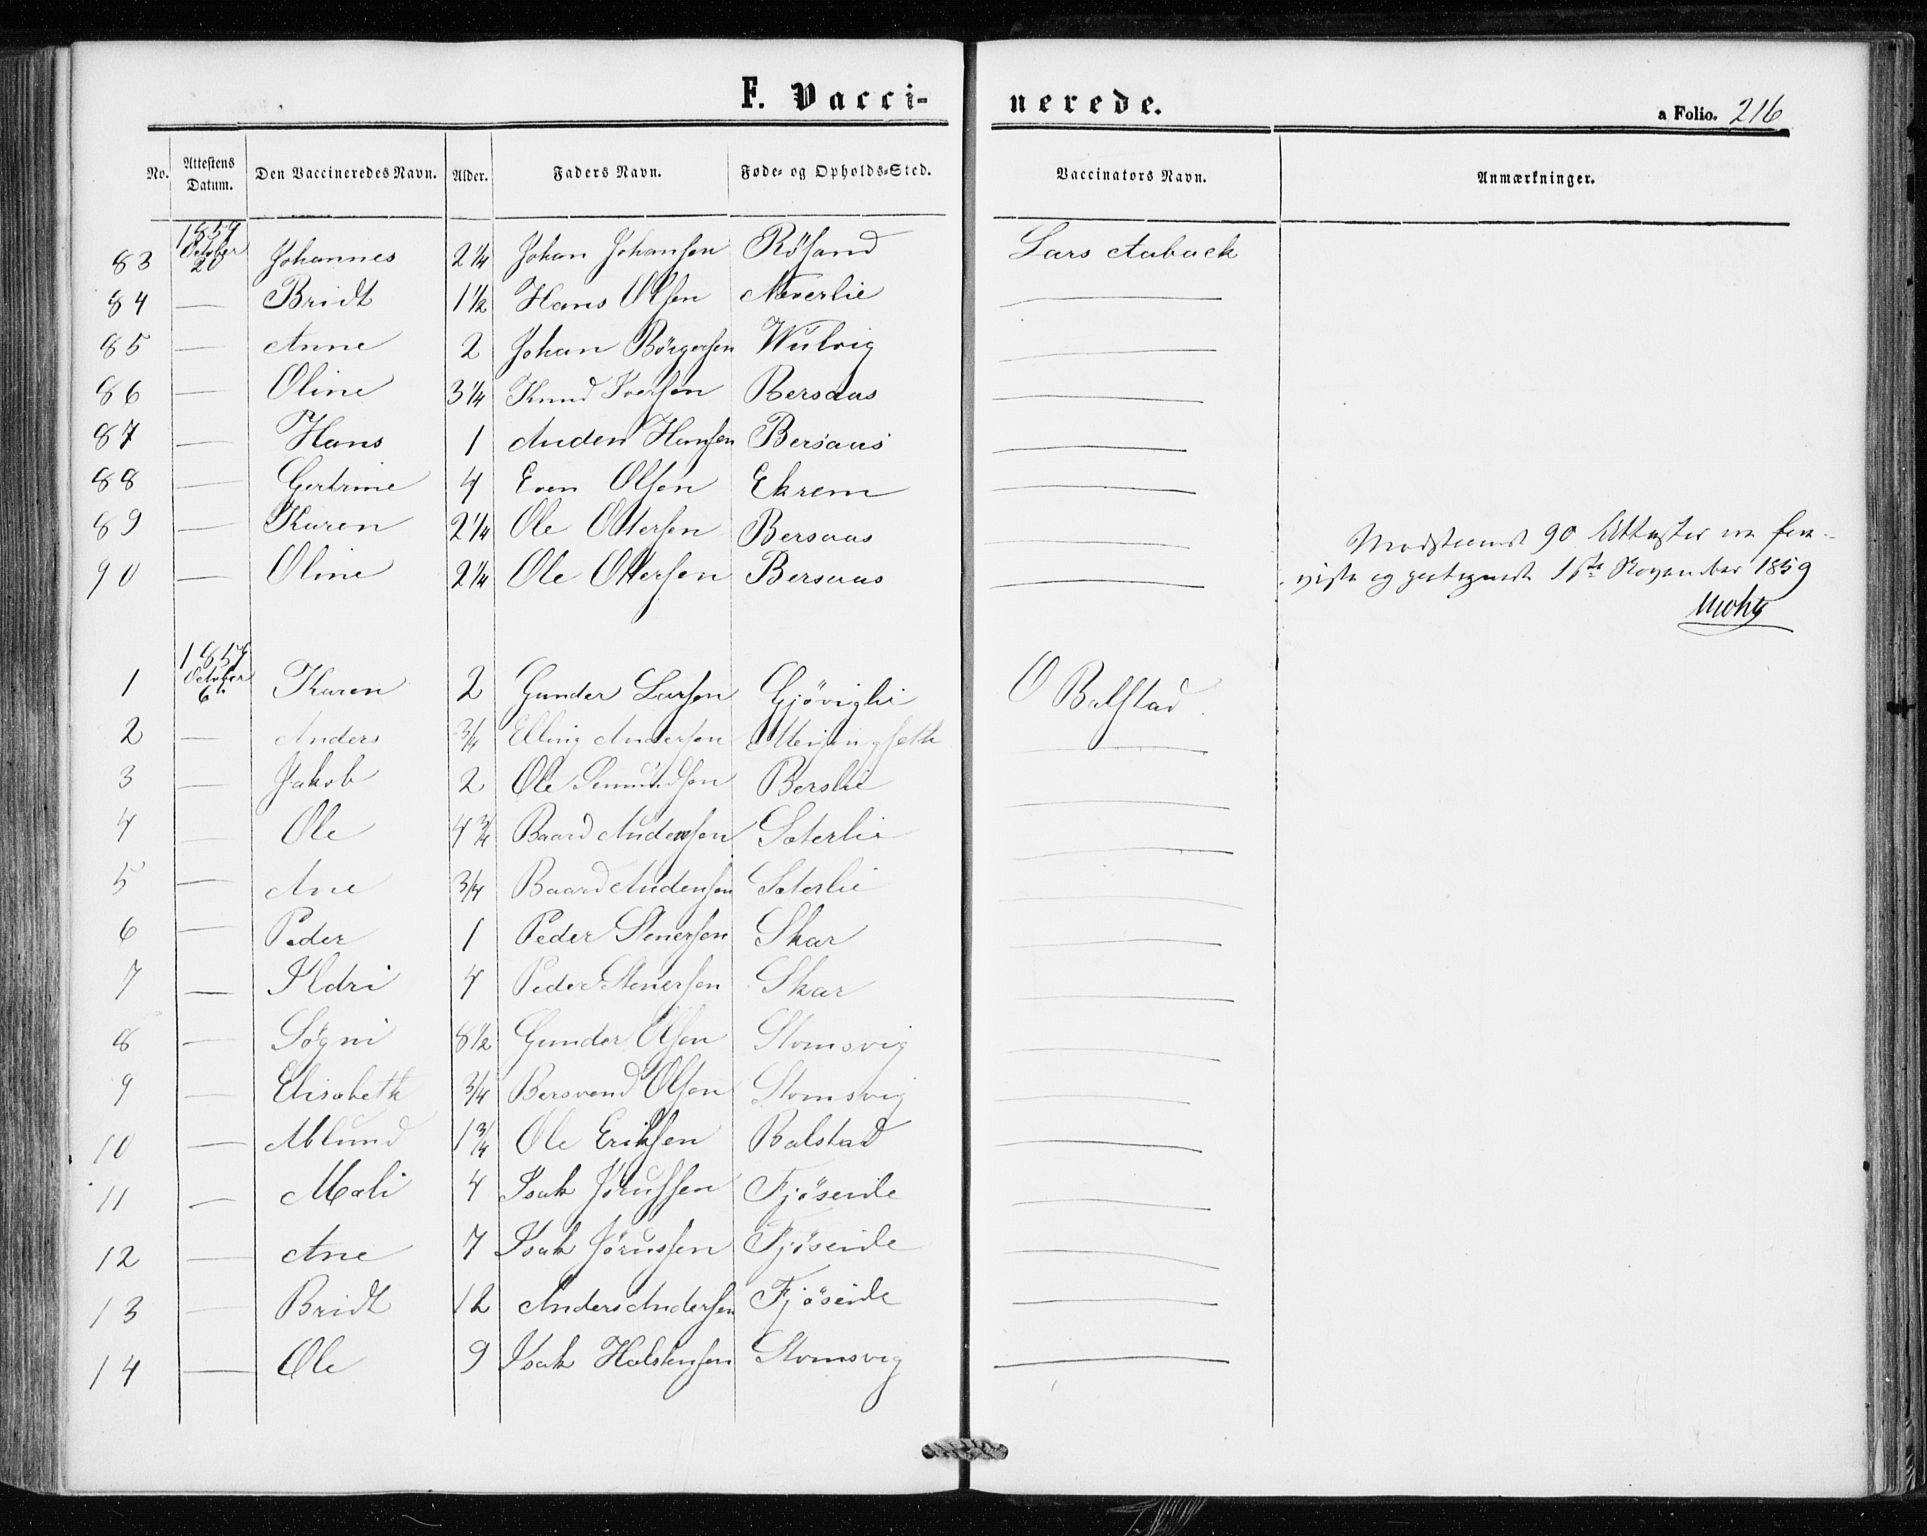 F. Vacci-
nerede.
a Folio. 216
No. Attestens Datum. Den Vaccineredes Navn. Alder. Faders Navn. Føde- og Opholds-Sted. Vaccinators Navn. Anmærkninger.
83 1859 October 20 Johannes 2 1/4 Johan Johansen Røsand Lars Aaback
84 — Bridt 1 1/2 Hans Olsen Neverlie —
85 — Anne 2 Johan Börgersen Wulvig —
86 — Oline 3 1/4 Knud Iversen Bersaas —
87 — Hans 1 Anden Hansen Bersaas —
88 — Gertrine 4 Even Olsen Ekrem —
89 — Karen 2 1/4 Ole Ottersen Bersaas —
90 — Oline 2 1/4 Ole Ottersen Bersaas —
90 Attester
1ste November 1859
1859 October 6 1 Karen 2 Gunder Larsen Gjöviglie O Balstad
2 — Anders 3/4 Elling Andersen Meisingseth —
3 — Jakob 2 Ole Semundsen Berslie —
4 — Ole 4 3/4 Baard Andensen Sæterlie —
5 — Ane 3/4 Baard Andensen Sæterlie —
6 — Peder 1 Peder Stenersen Skar —
7 — Ildri 4 Peder Stenersen Skar —
8 — Sögni 8 1/2 Gunder Olsen Stomsvig —
9 — Elisabeth 3/4 Bersvend Olsen Stomsvig —
10 — Aslund 1 3/4 Ole Eriksen Balstad —
11 — Mali 4 Isak Jørussen Fjöseide —
12 — Ane 7 Isak Jørussen Fjöseide —
13 — Bridt 12 Anders Andersen Fjöseide —
14 — Ole 9 Isak Halstensen Stomsvig —